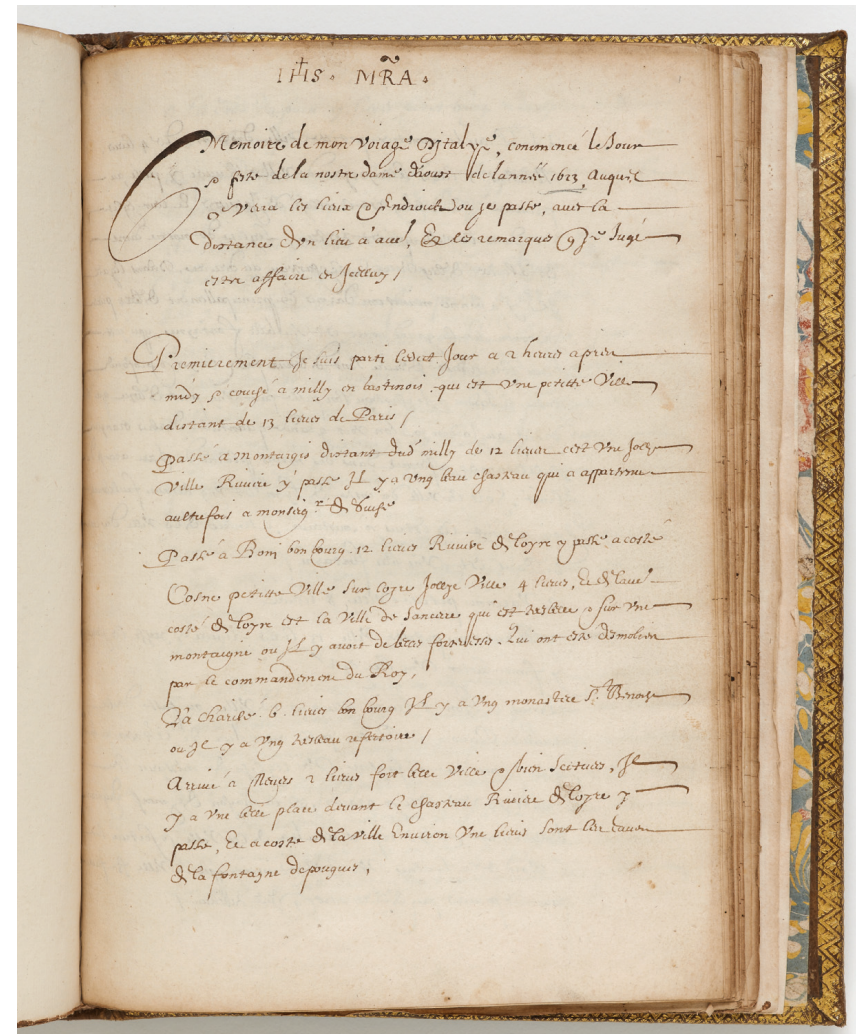 IHS . MRA .
Memoire de mon Voiage Dytalye, commencé le Jour
& feste de la nostre dame d'aoust de lannée 1623, Auquel
se Verra les lieux & Endroictz ou Je passé, avec la
distance d'un lieu à autre, Et les remarques que Je Jugé
estre affaire en Jcelluy /
Premierement Je suis parti ledict Jour a 2 heures apres
midy & couché a milly en Gastinois, qui est Vne petitte Ville
distant de 13 lieues de Paris /
Passé a montargis distant dud milly de 12 lieues cest Vne Jolye
Ville Riviere y passe Jl y a Vng beau chasteau qui a appartenu
aultrefois a monseigr de Guise
Passé a Boni bon bourg. 12 lieues Riviere de loyre y passe a costé
Cosne petitte Ville sur loyre Jollye Ville 4 lieues, Et de lautre
costé de loyre est la Ville de Sancerre qui est sur Vne
montaigne ou Jl y avoit de belles forteresses. Qui ont esté desmolies
par le commandement du Roy,
La Charité. 6. lieues bon bourg Jl y a Vng monastere St. Benoist
ou Jl y a Vng tresbeau refectoire /
Arrivé a Nevers 2 lieues fort belle Ville & bien scituée, Jl
y a Vne belle place devant le chasteau Riviere de loyre y
passe, Et a coste de la ville Environ Vne lieue sont les eaues
de la fontayne de pougues,